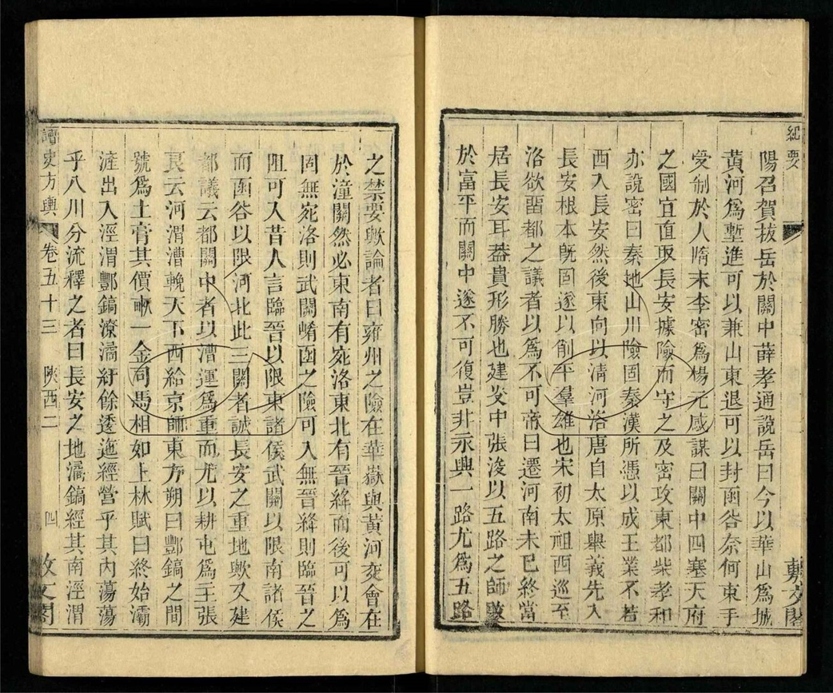 紀要
陽召賀拔岳於關中薛孝通說岳曰今以華山爲城
黃河爲塹進可以兼山東退可以封函谷奈何束手
受制於人隋末李密爲楊元感謀曰關中四塞天府
之國宜直取長安據險而守之及密攻東都柴孝和
亦說密曰秦地山川險固秦漢所憑以成王業不若
西入長安然後東向以清河洛唐自太原舉義先入
長安根本旣固遂以削平羣雄也宋初太祖西巡至
洛欲留都之議者以爲不可帝曰遷河南未已終當
居長安耳葢貴形勝也建炎中張浚以五路之師
於富平而關中遂不可復豈非永興一路尤爲五路
敷文閣
之禁要歟論者曰雍州之險在華嶽與黃河交會在
於潼關然必東南有宛洛東北有晉絳而後可以爲
固無宛洛則武關崤函之險可入無晉絳則臨晉之
阻可入昔人言臨晉以限東諸侯武關以限南諸侯
而函谷以限河北此三關者誠長安之重地歟又建
都議云都關中者以漕運爲重而尤以耕屯爲王張
良云河渭漕輓天下西給京師東方朔曰酆鎬之間
號爲土膏其價畝一金司馬相如上林賦曰終始灞
滻出入涇渭酆鎬潦潏紆餘逶迤經營乎其內蕩蕩
乎八川分流釋之者曰長安之地潏鎬經其南涇渭
讀史方輿
卷五十三
陝西二
四
敷文閣